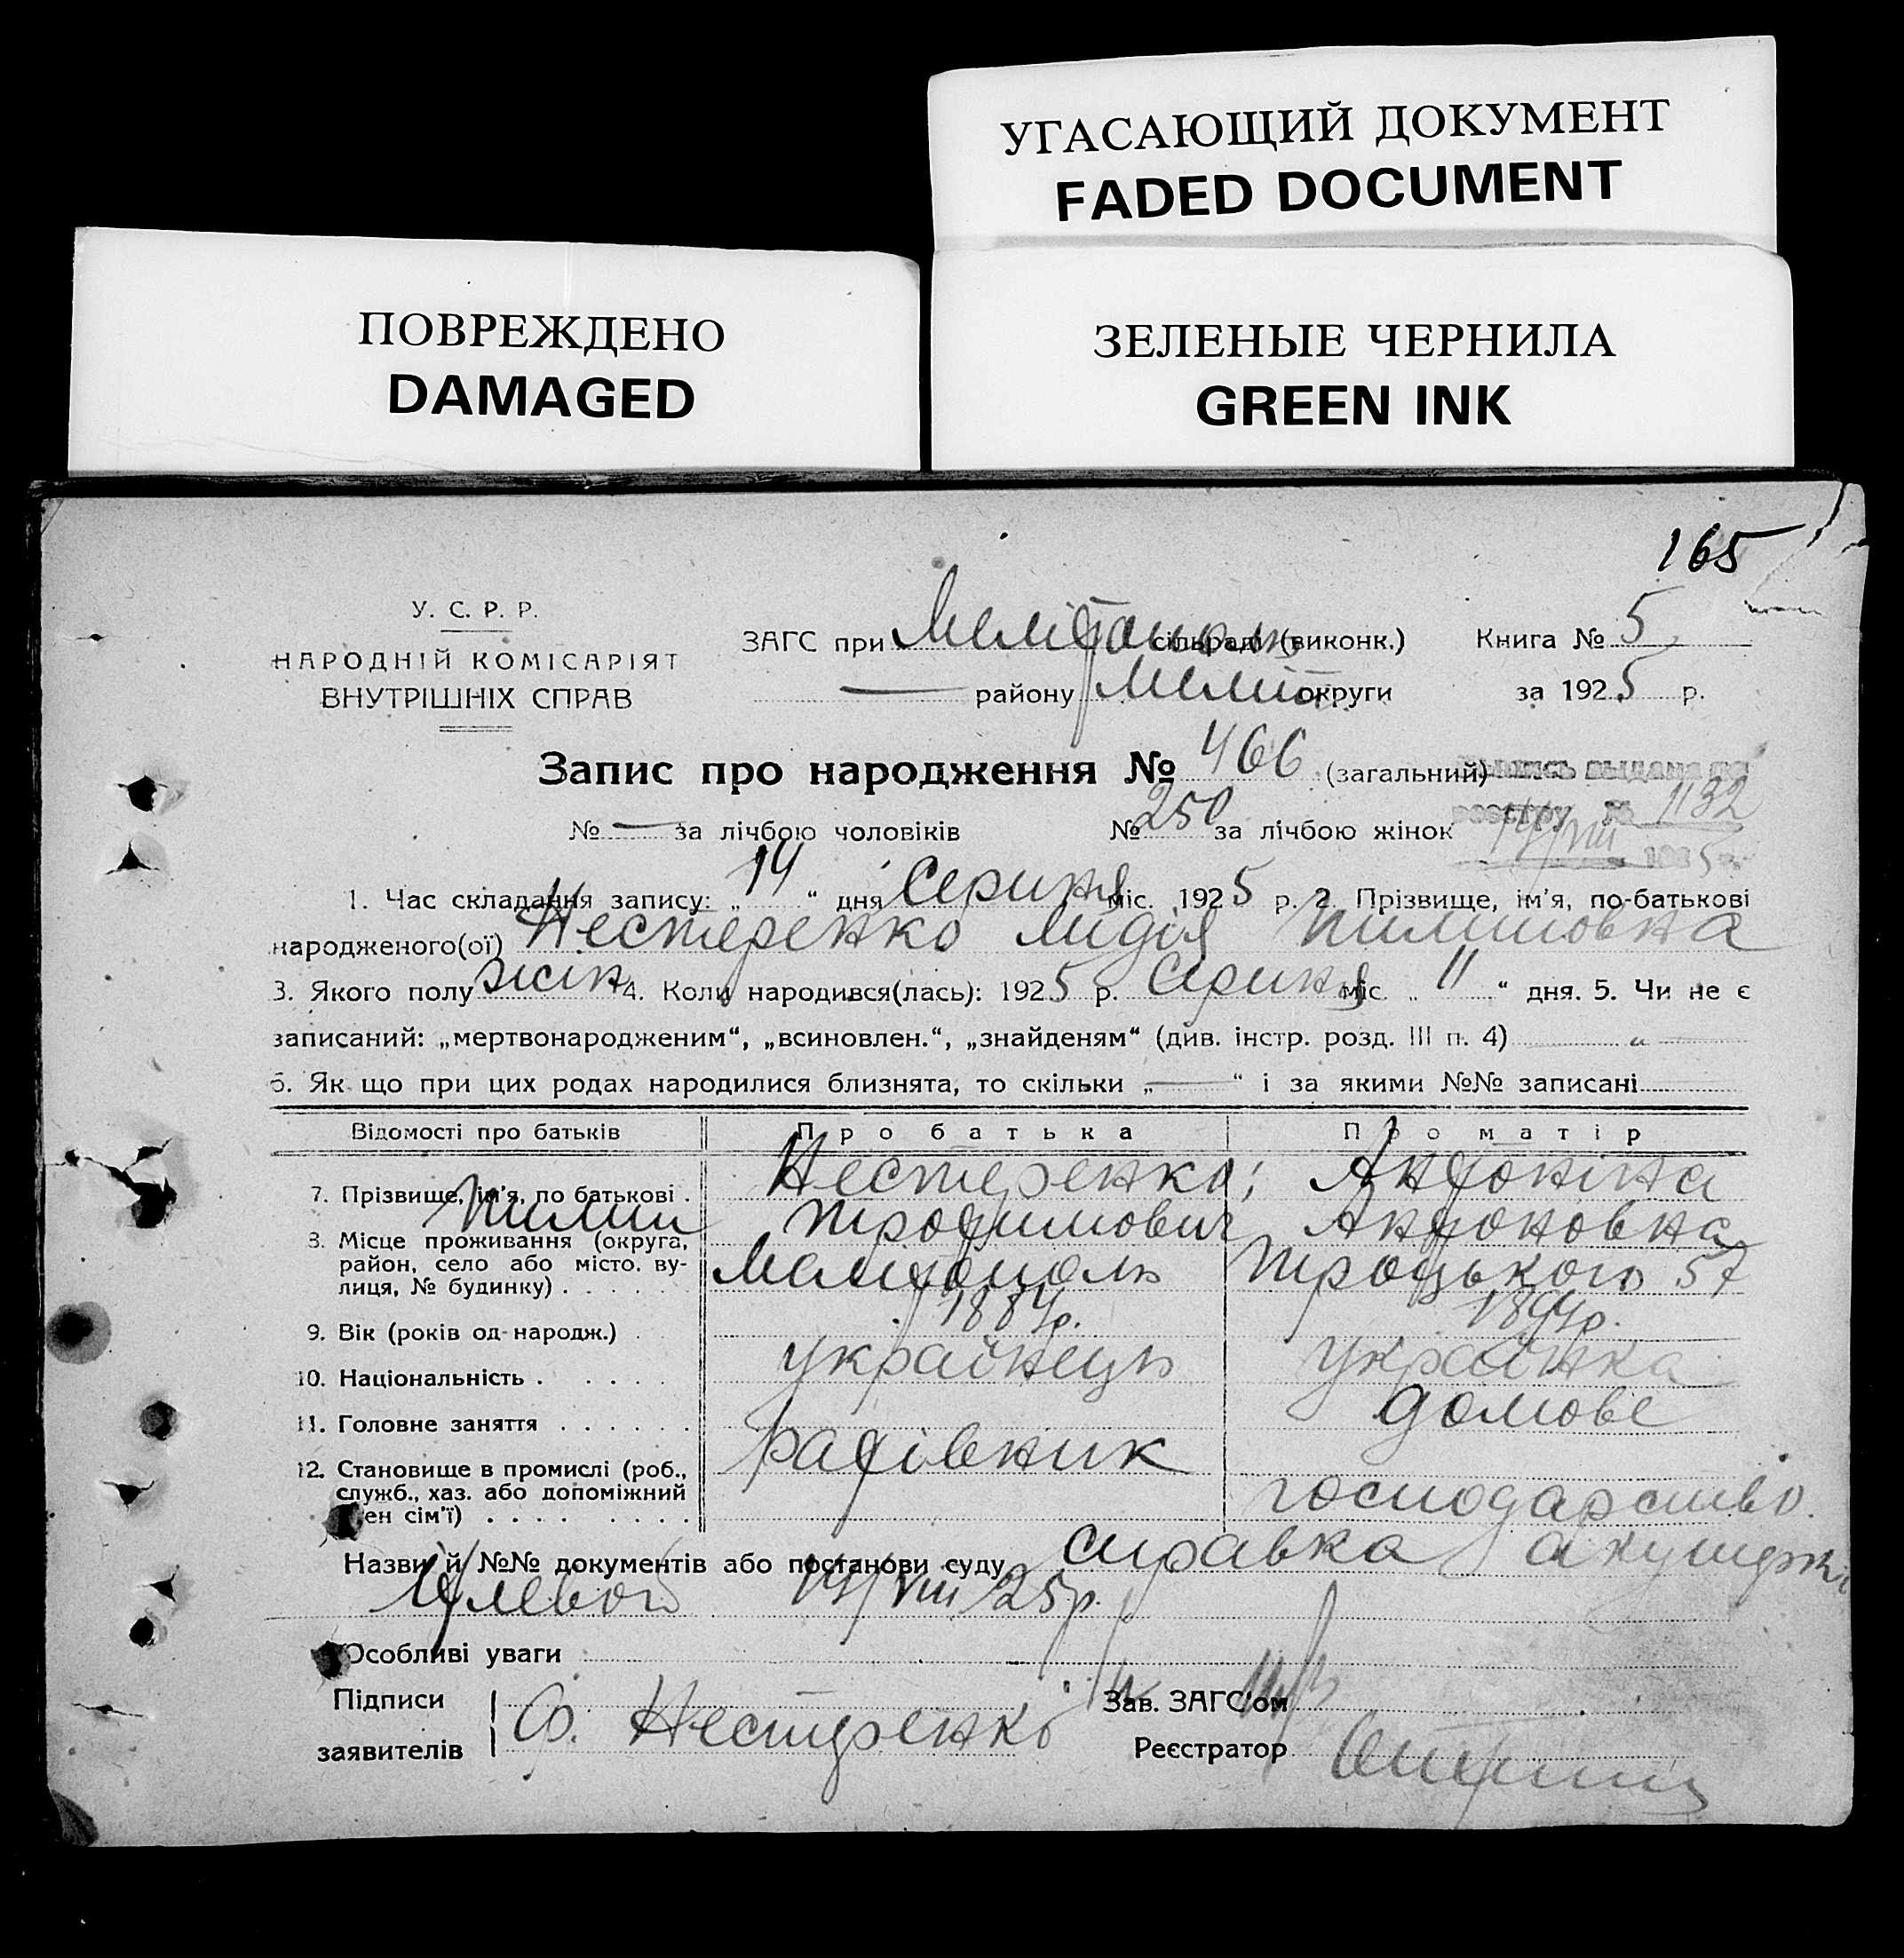 УГАСАЮЩИЙ ДОКУМЕНТ
FADED DOCUMENT
ПОВРЕЖДЕНО
DAMAGED
ЗЕЛЕНЫЕ ЧЕРНИЛА
GREEN INK
165
У. С. Р. Р.
НАРОДНІЙ КОМІСАРІЯТ
ВНУТРІШНІХ СПРАВ
ЗАГС при сільраді (виконк.) Книга № 5
— району Меліт округи за 1925 р.
Запис про народження № 466 (загальний)
выдана по
реестру № 1132
14/VIII 1925
№ — за лічбою чоловіків № 250 за лічбою жінок
1. Час складання запису: „14“ дня Серпня міс. 1925 р. 2. Прізвище, ім'я, по-батькові
народженого(ої) Нестеренко Лидія Пилиповна
3. Якого полу жін 4. Коли народився(лась): 1925 р. Серпня міс. „11“ дня. 5. Чи не є
записаний: „мертвонародженим“, „всиновлен.“, „знайденям“ (див. інстр. розд. III п. 4) “ —
6. Як що при цих родах народилися близнята, то скільки „—“ і за якими №№ записані
Відомості про батьків Про батька Про матір
7. Прізвище, ім'я, по батькові . Нестеренко; Антоніна
Пилип Трофимович Антоновна
8. Місце проживання (округа,
район, село або місто, ву-
лиця, № будинку) . . . . . . Мелітополь Троцького 57
9. Вік (років од-народж.) . 1884р. 1894р.
10. Національність . . . . . українець українка
11. Головне заняття . . . . . . домове
12. Становище в промислі (роб.,
служб., хаз. або допоміжний
ен сім'ї) . . . . . . . . робівник господарство.
Назви й №№ документів або постанови суду справка акушерки
14/VIII 25р.
Особливі уваги
Підписи
заявителів Ф. Нестеренко
Зав. ЗАГС'ом
Реєстратор